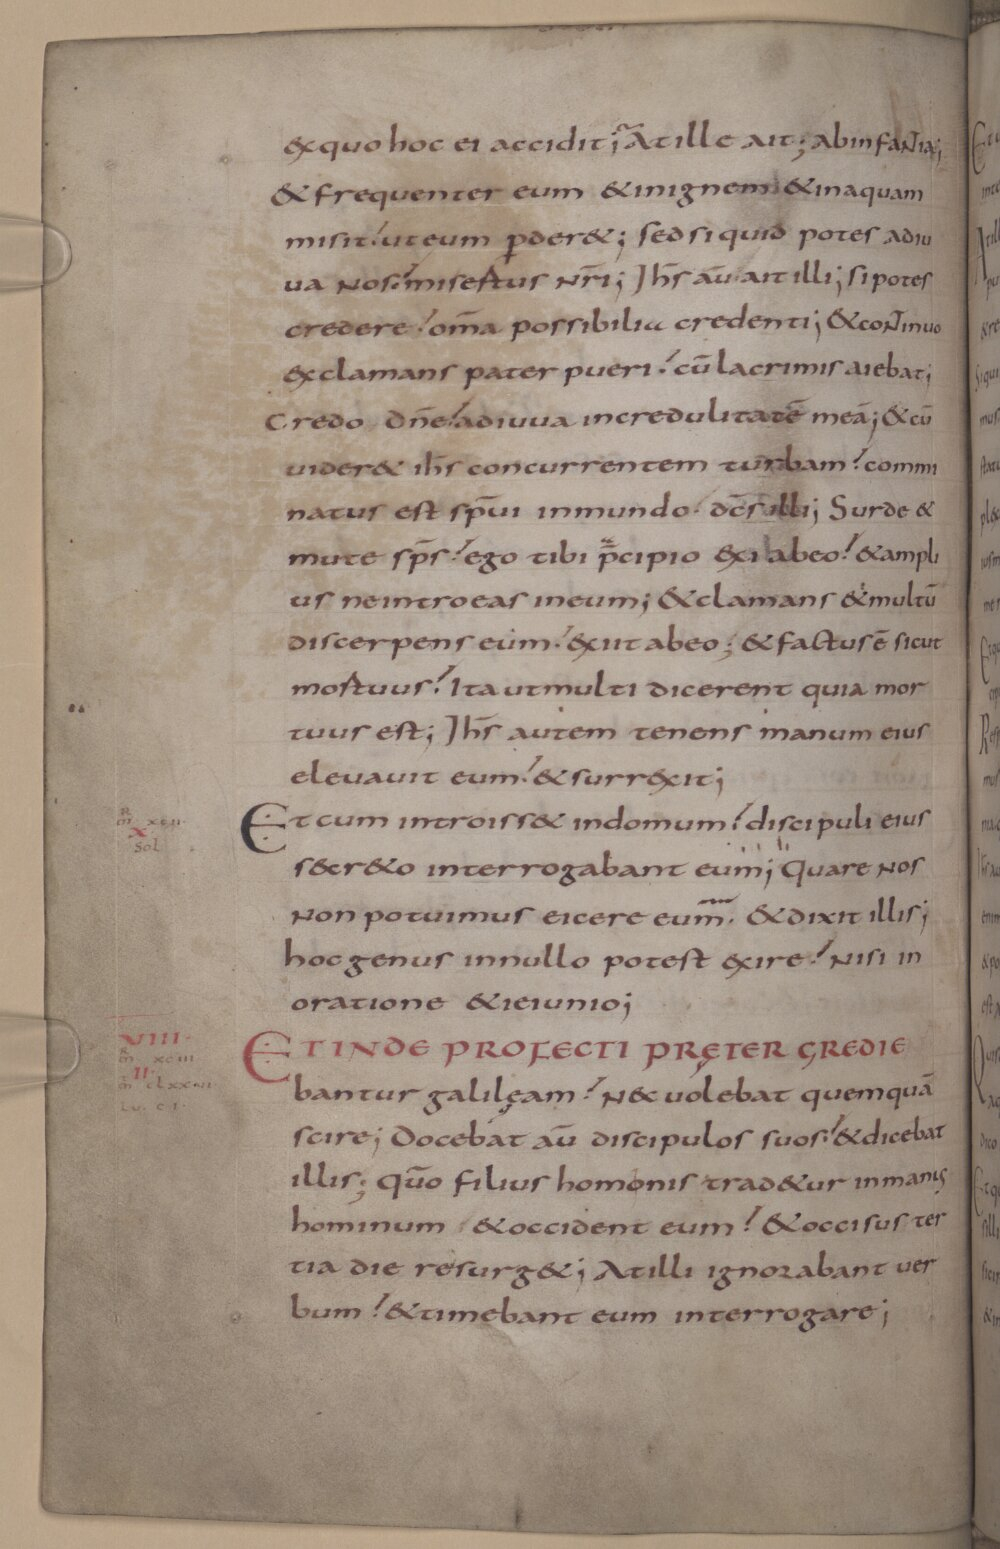 &quo hoc ei accidit; At ille ait; ab infantia;
& frequenter eum & inignem & inaquam
misit ut eum p̱der&; sed si quid potes adiu
ua nos misertus nr̄i; Ih̄s aū ait illi; si potes
credere om̄a possibilia credenti; & continuo
exclamans pater pueri cū lacrimis aiebat;
Credo dn̄e adiuua incredulitatē meā; & cū
uider& ih̄s concurrentem turbam commi
natus est sp̄ui inmundo dc̄s illi; Surde &
mute sp̄s ego tibi p̄cipio exi abeo & ampli
us neintroeas ineum; & clamans & multū
discerpens eum exiit abeo; & factus ē sicut
mortuus Ita ut multi dicerent quia mor
tuus est; Ih̄s autem tenens manum eius
eleuauit eum & surrexit;
R
m xcii
X
Sol
Et cum introiss& indomum discipuli eius
secr&o interrogabant eum; Quare nos
non potuimus eicere eum. & dixit illis;
hoc genus innullo potest exire nisi in
oratione & ieiunio;
VIII
R
m xciii
II
m clxxvi
Lu. ci
ET INDE PROFECTI PRĘTER GREDIE
bantur galilęam nec uolebat quemquā
scire; Docebat aū discipulos suos & dicebat
illis; qūo filius hominis trad&ur inmanus
hominum & occident eum & occisus ter
tia die resurg&; At illi ignorabant uer
bum & timebant eum interrogare;